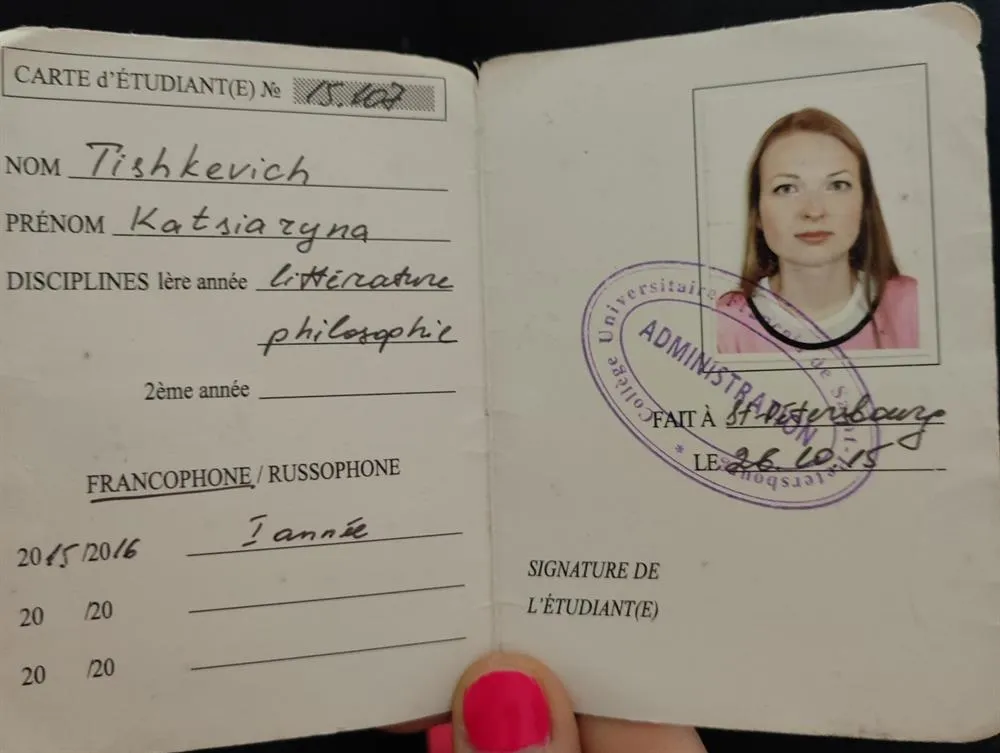 CARTE d'ÉTUDIANT(E) № 15.107
NOM Tishkevich
PRÉNOM Katsiaryna
DISCIPLINES 1ère année littérature
philosophie
2ème année
FRANCOPHONE / RUSSOPHONE
2015/2016 I année
20 /20
20 /20
Collège Universitaire Français de Saint-Pétersbourg *
ADMINISTRATION
FAIT À St-Pétersbourg
LE 26.10.15
SIGNATURE DE
L'ÉTUDIANT(E)